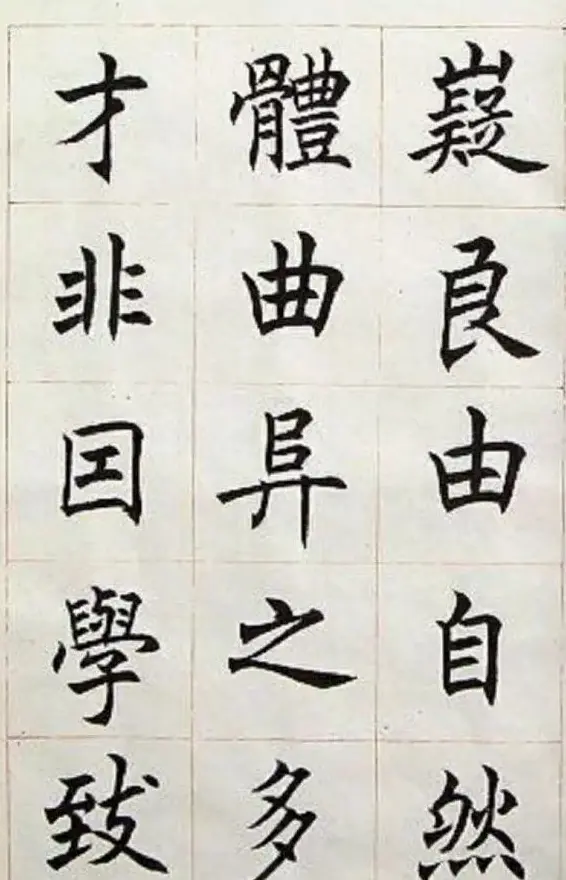 嶷良由自然
體曲异之多
才非囙學致